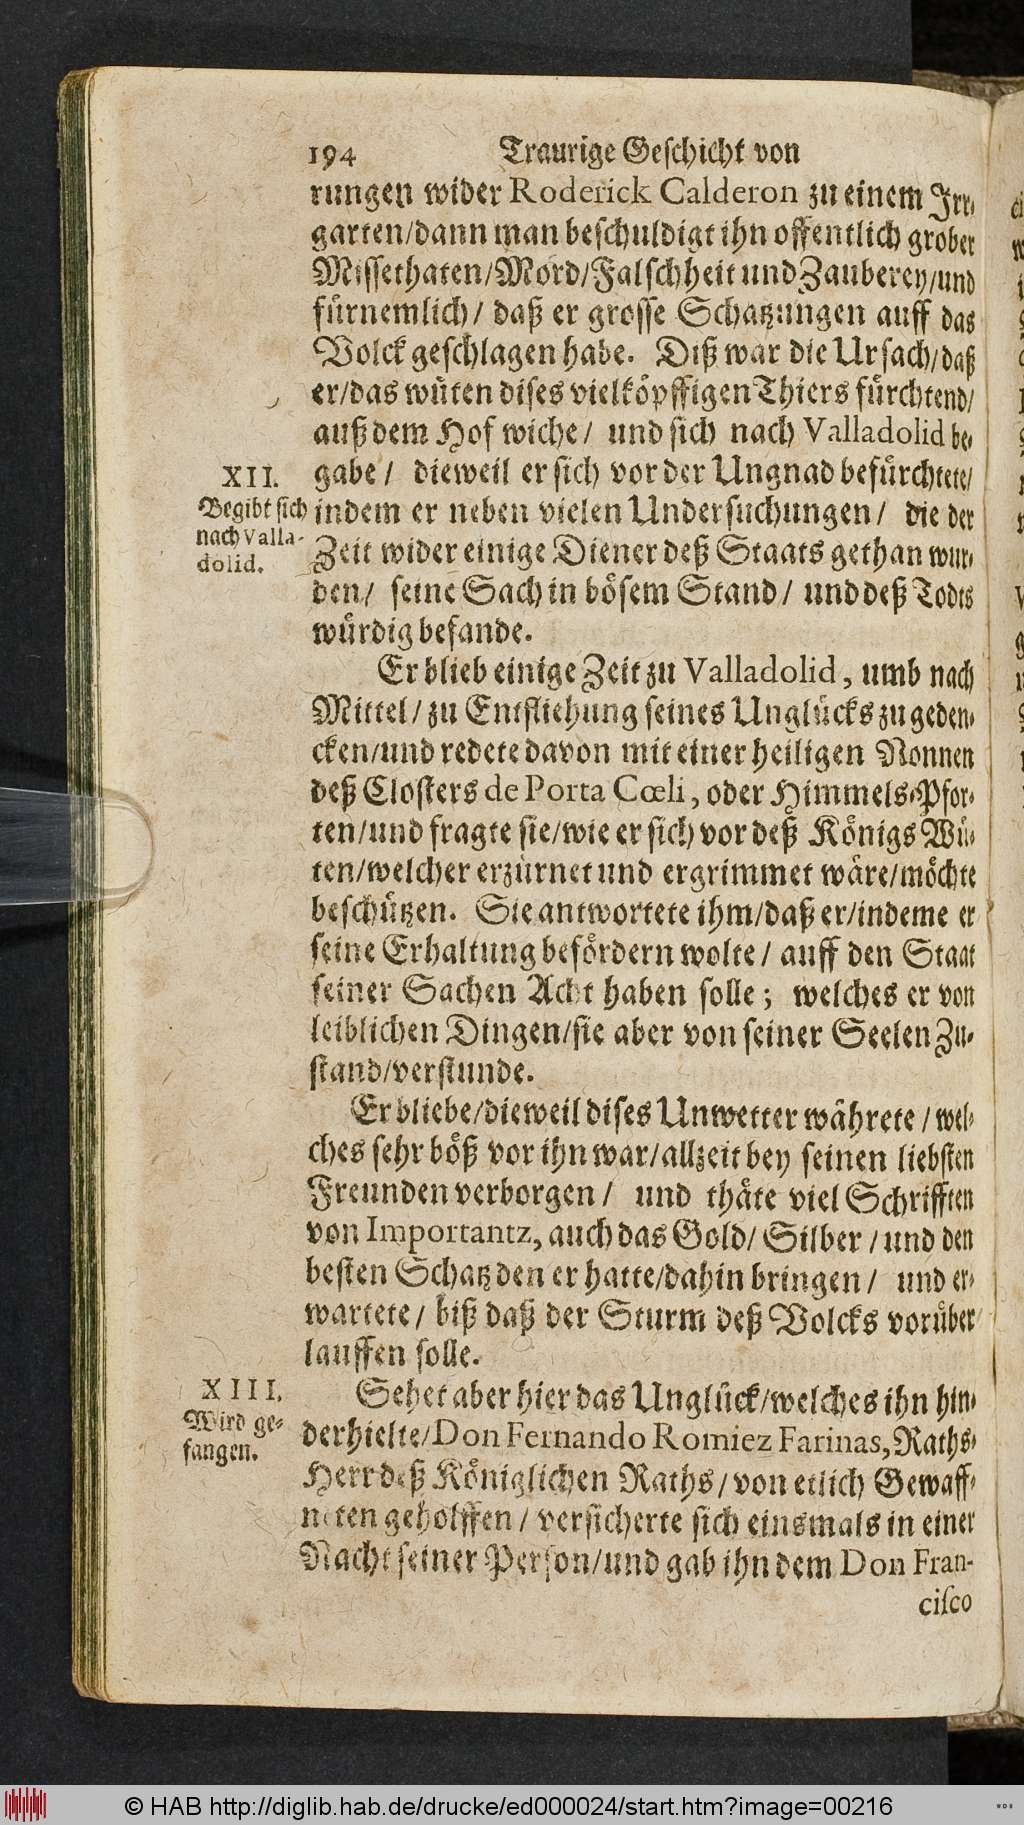 194 Traurige Geschicht von
rungen wider Roderick Calderon zu einem Irr-
garten/dann man beschuldigt ihn offentlich grober
Missethaten/Mord/Falschheit und Zauberey/und
fürnemlich/ daß er grosse Schatzungen auff das
Volck geschlagen habe. Diß war die Ursach/daß
er/das wüten dises vielköpffigen Thiers fürchtend/
auß dem Hof wiche/ und sich nach Valladolid be-
gabe/ dieweil er sich vor der Ungnad befürchtete/
indem er neben vielen Undersuchungen/ die der
Zeit wider einige Diener deß Staats gethan wur-
den/ seine Sach in bösem Stand/ und deß Todts
würdig befande.
XII.
Begibt sich
nach Valla-
dolid.
Er blieb einige Zeit zu Valladolid, umb nach
Mittel/zu Entfliehung seines Unglücks zu geden-
cken/und redete davon mit einer heiligen Nonnen
deß Closters de Porta Cœli, oder Himmels-Pfor-
ten/und fragte sie/wie er sich vor deß Königs Wü-
ten/welcher erzürnet und ergrimmet wäre/möchte
beschützen. Sie antwortete ihm/daß er/indeme er
seine Erhaltung befördern wolte/ auff den Staat
seiner Sachen Acht haben solle; welches er von
leiblichen Dingen/sie aber von seiner Seelen Zu-
stand/verstunde.
Er bliebe/dieweil dises Unwetter währete/wel-
ches sehr böß vor ihn war/allzeit bey seinen liebsten
Freunden verborgen/ und thäte viel Schrifften
von Importantz, auch das Gold/ Silber/und den
besten Schatz den er hatte/dahin bringen/ und er-
wartete/ biß daß der Sturm deß Volcks vorüber
lauffen solle.
XIII.
Wird ge-
fangen.
Sehet aber hier das Unglück/welches ihn hin-
derhielte/Don Fernando Romiez Farinas, Raths-
Herr deß Königlichen Raths/von etlich Gewaff-
neten geholffen/ versicherte sich einsmals in einer
Nacht seiner Person/und gab ihn dem Don Fran-
cisco
© HAB http://diglib.hab.de/drucke/ed000024/start.htm?image=00216